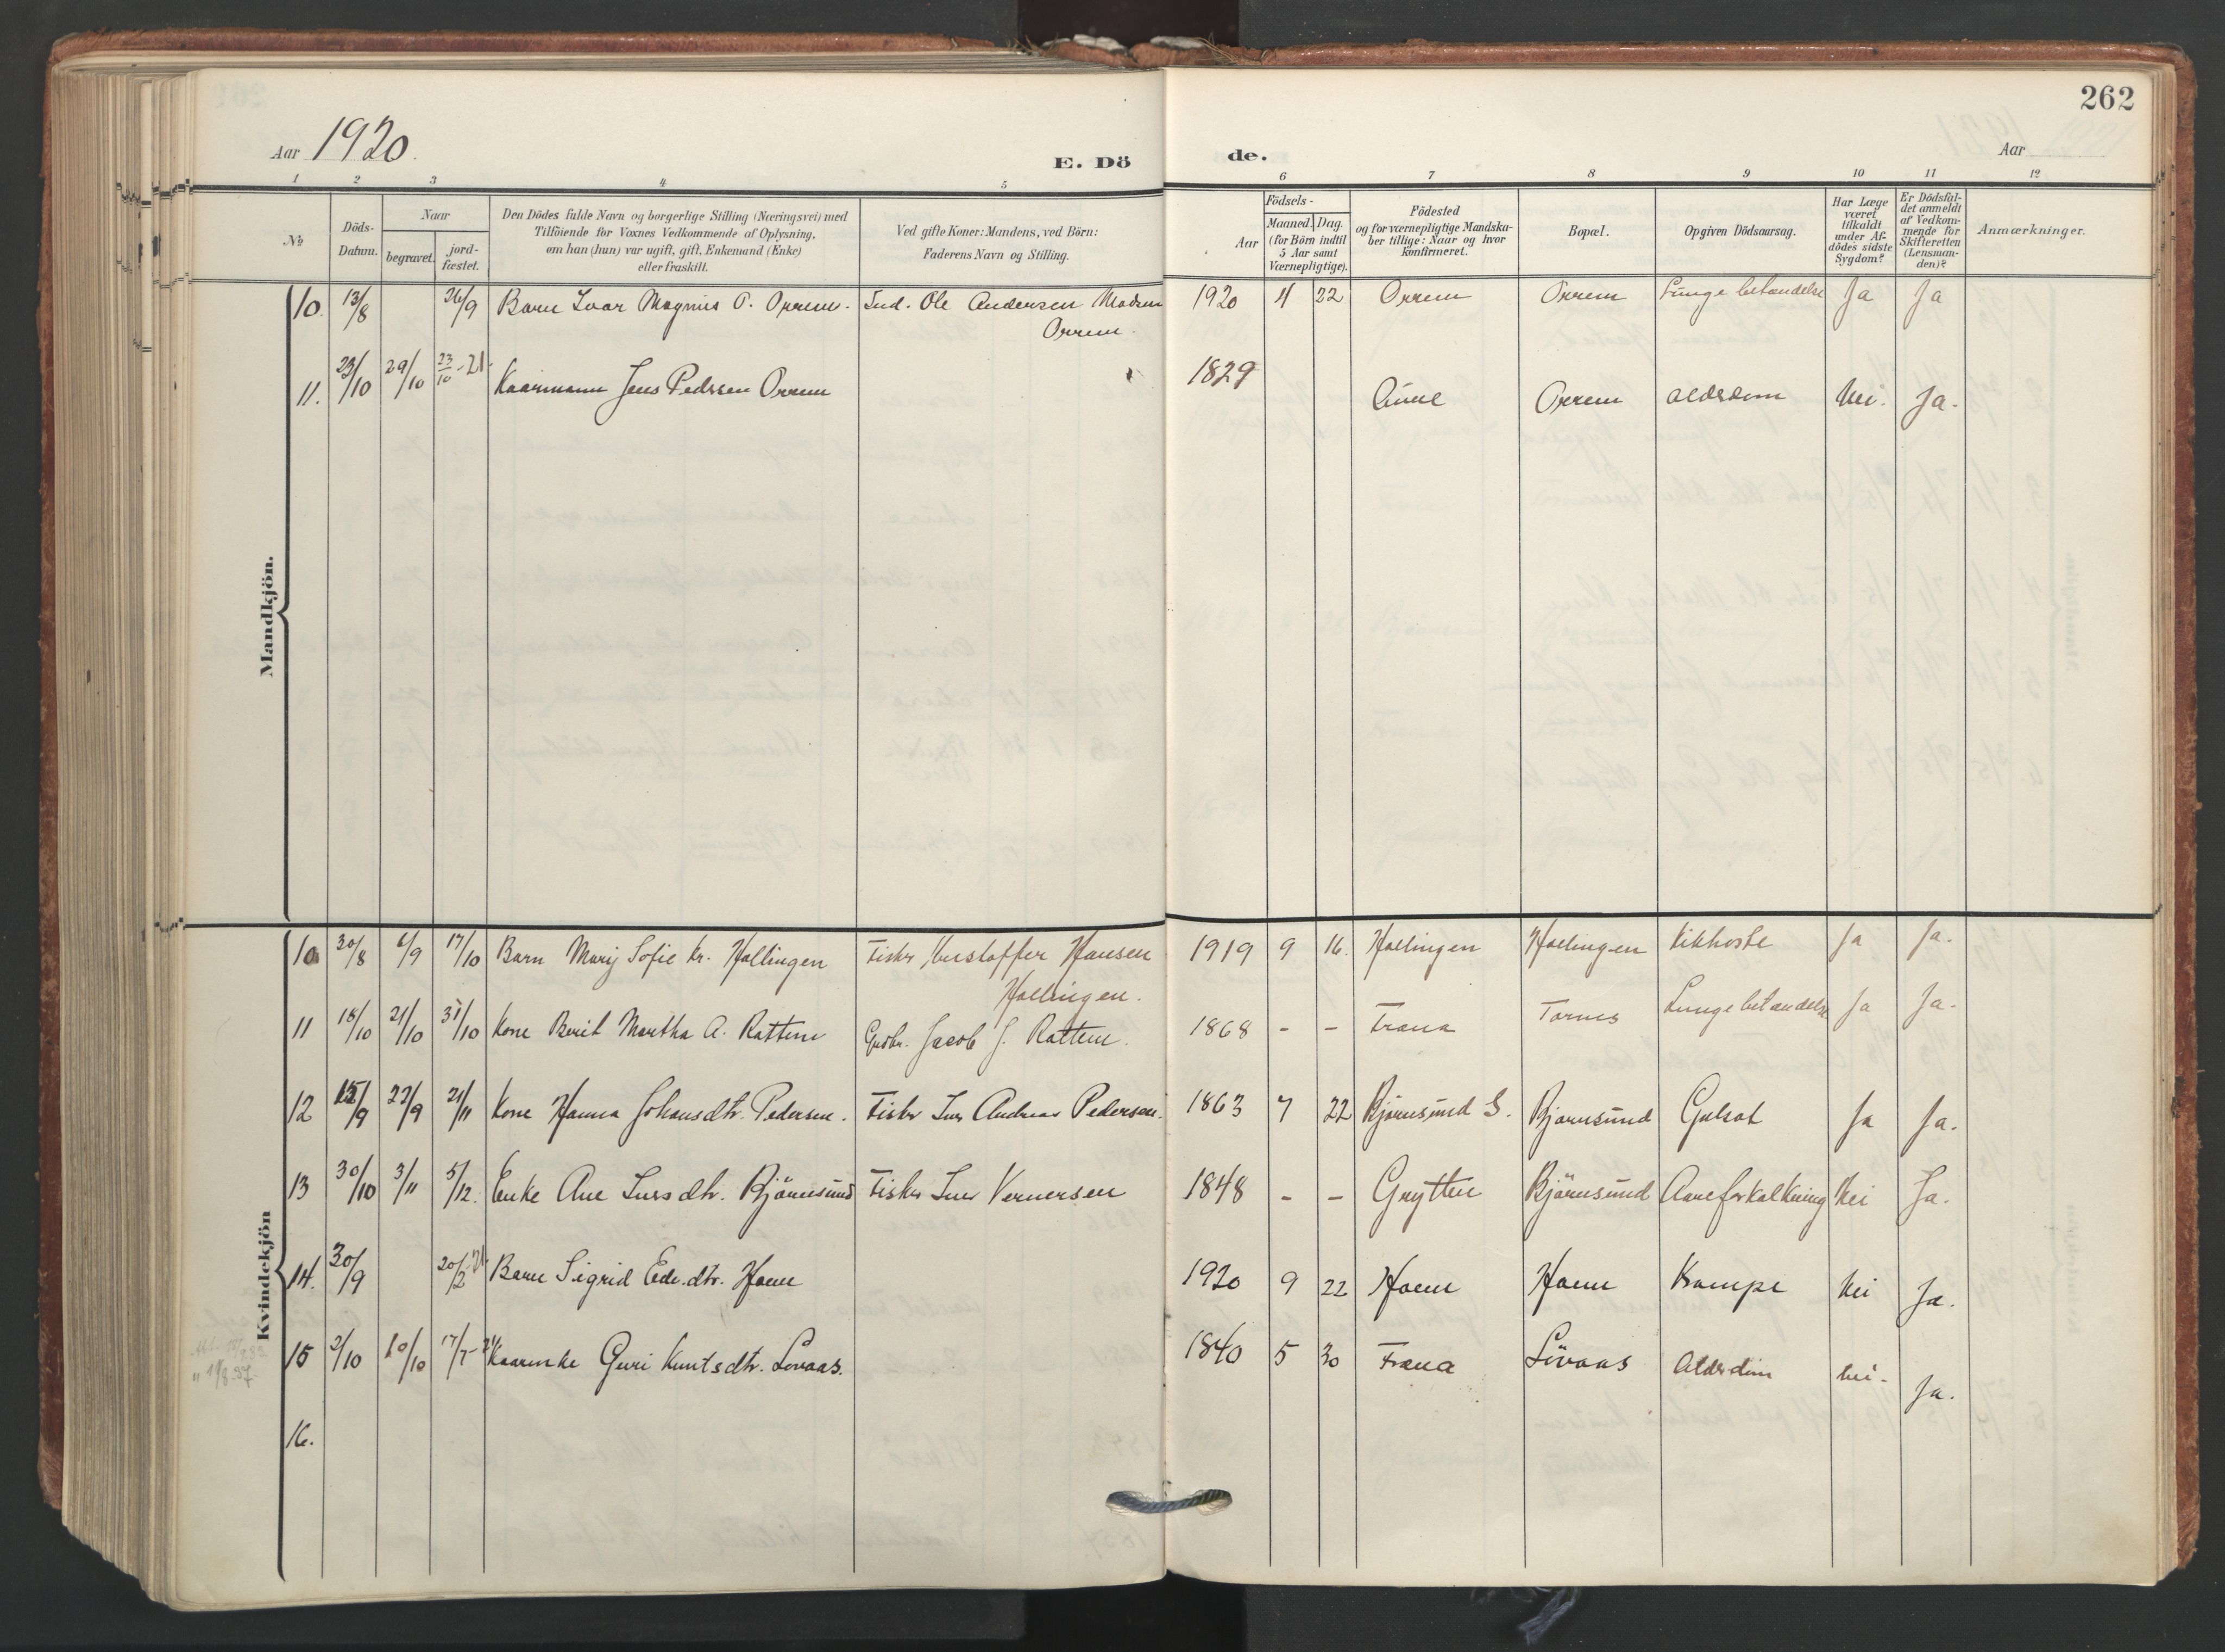 262
Aar 1920.
E. Dö
de.
Aar
1 2 3 4 5 6 7 8 9 10 11 12
№
Döds-Datum.
Naar
begravet.
jord-fæstet.
Den Dödes fulde Navn og borgerlige Stilling (Næringsvei) med
Tilföiende for Voxnes Vedkommende af Oplysning,
om han (hun) var ugift, gift, Enkemand (Enke)
eller fraskilt.
Ved gifte Koner: Mandens, ved Börn:
Faderens Navn og Stilling.
Födsels-
Aar
Maaned. Dag.
(for Börn indtil
5 Aar samt
Værnepligtige).
Födested
og for værnepligtige Mandska-
ber tillige: Naar og hvor
Konfirmeret.
Bopæl.
Opgiven Dödsaarsag.
Har Læge
været
tilkaldt
under Af-
dödes sidste
Sygdom?
Er Dödsfal-
det anmeldt
af Vedkom-
mende for
Skifteretten
(Lensman-
den)?
Anmærkninger.
Mandkjön.
10. 13/8 26/9 Barn Ivar Magnus O. Orrem. Ole Andersen Madsen 1920 4 22 Orrem Orrem Lungebetændelse Ja Ja
Orrem.
11. 23/10 29/10 23/10-21. Kaarmann Jens Pedersen Orrem 1829 Aure Orrem alderdom Nei. Ja.
Kvindekjön
10 30/8 6/9 17/10 Barn Marij Sofie Kr. Hallingen Fisker Kristoffer Hansen 1919 9 16. Hollingen Hollingen Kikhoste Ja Ja.
Hollingen.
11 18/10 21/10 31/10 Kone Berit Martha A. Rattem Grdbr. Jacob J. Rattem. 1868 - - Fræna Tornes Lungebetændelse Ja Ja.
12 15/9 22/9 21/11 Kone Hanna Johansdtr. Pedersen. Fisker Iver Andreas Pedersen. 1863 7 22 Björnsund S. Bjornsund Gulsot Ja Ja.
13 30/10 3/11 5/12. Enke Ane Iversdtr. Björnsund Fisker Iver Vernersen 1848 - - Grytten Björnsund Aareforkalkning Nei Ja.
14. 30/9 20/2 21. Barn Sigrid Edv.dtr. Harn 1920 9 22 Harn Harn Krampe Nei Ja.
15 2/10 10/10 17/7-21 Kaarenke Guri Knutsdtr. Lövaas. 1840 5 30 Fræna Lövaas Alderdom Nei. Ja.
16.